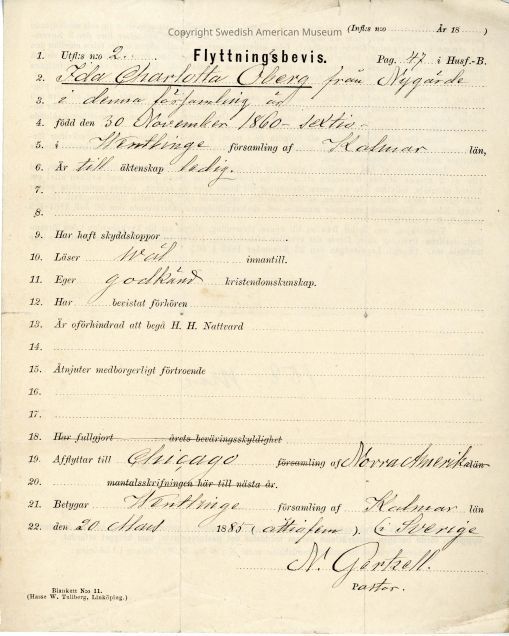 Copyright Swedish American Museum
(Infl:s n:o År 18 )
Flyttningsbevis.
1. Utfl:s n:o 2. Pag. 47 i Husf.-B.
2. Ida Charlotta Öberg från Nygärde
3. i denna församling är
4. född den 30 November 1860 - sextio -
5. i Wentlinge församling af Kalmar län,
6. Är till äktenskap ledig.
7.
8.
9. Har haft skyddskoppor
10. Läser wäl innantill.
11. Eger godkänd kristendomskunskap.
12. Har bevistat förhören
13. Är oförhindrad att begå H. H. Nattvard
14.
15. Åtnjuter medborgerligt förtroende
16.
17.
18. Har fullgjort årets beväringsskyldighet
19. Afflyttar till Chicago församling af Norra Amerika län
20. mantalsskrifningen här till nästa år.
21. Betygar Wentlinge församling af Kalmar län
22. den 20 Mars 1885 (attiofem). (i Sverige
N. Gerkell.
Pastor.
Blankett N:o 11.
(Hasse W. Tullberg, Linköping.)